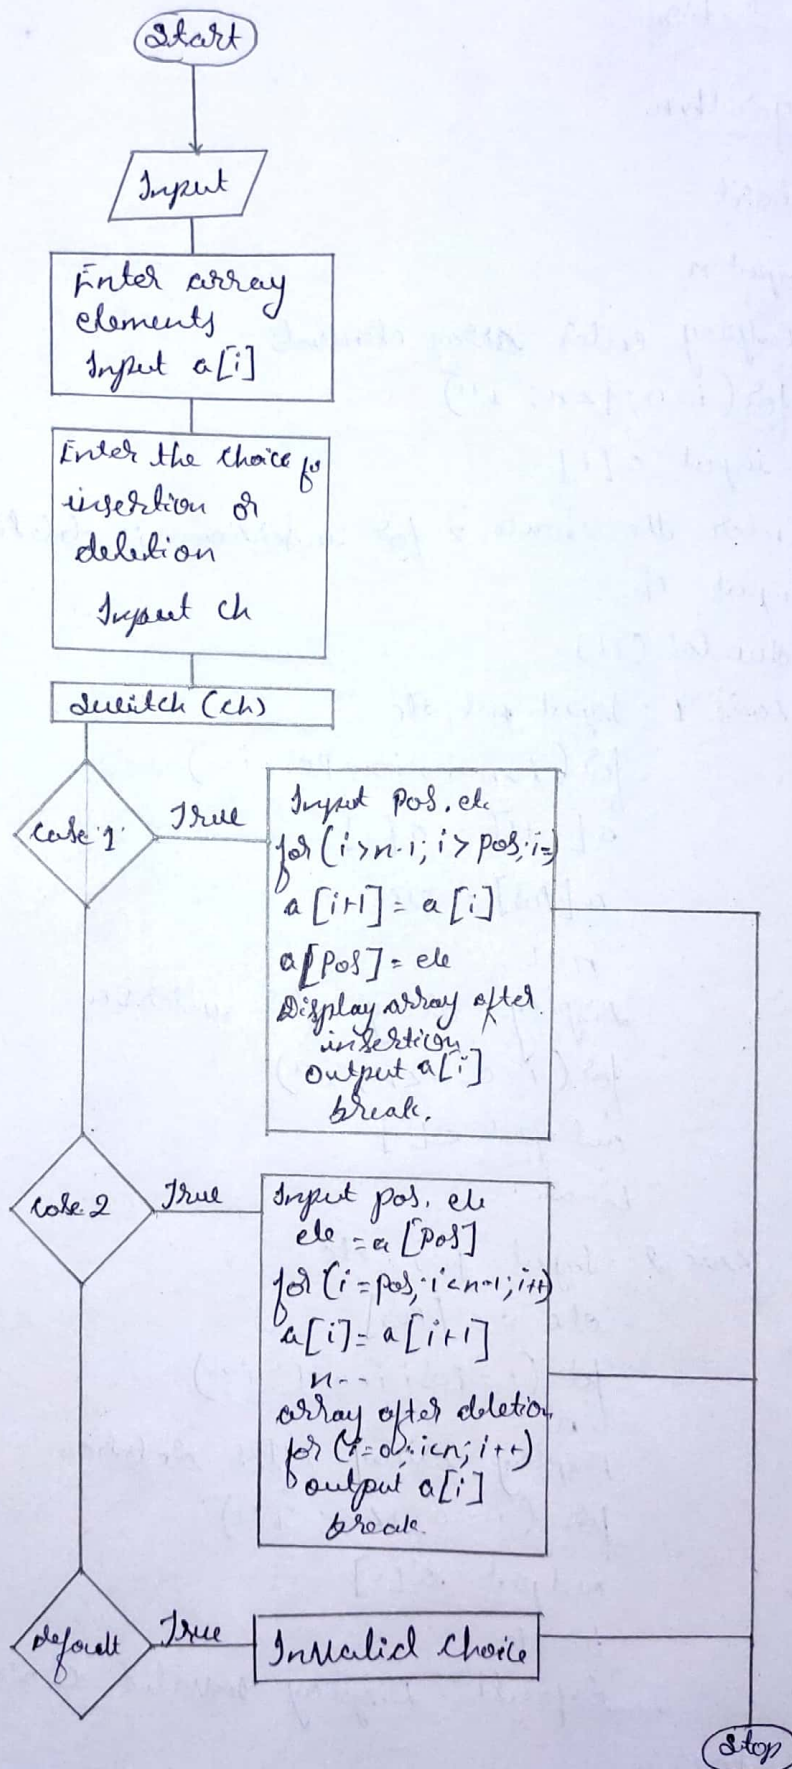 Start
Input
Enter array
elements
Input a[i]
Enter the choice fo
insertion or
deletion
Input ch
switch (ch)
case 1
True
Input pos, ele
for (i>n-1; i> pos; i=)
a [i+1] = a [i]
a [pos] = ele
Display array after
insertion
output a[i]
break.
case 2
True
Input pos, ele
ele = a [pos]
for (i = pos; i<n-1; i++)
a [i] = a [i+1]
n--
array after deletion
for (i=0; i<n; i++)
output a[i]
break.
default
True
Invalid choice
Stop